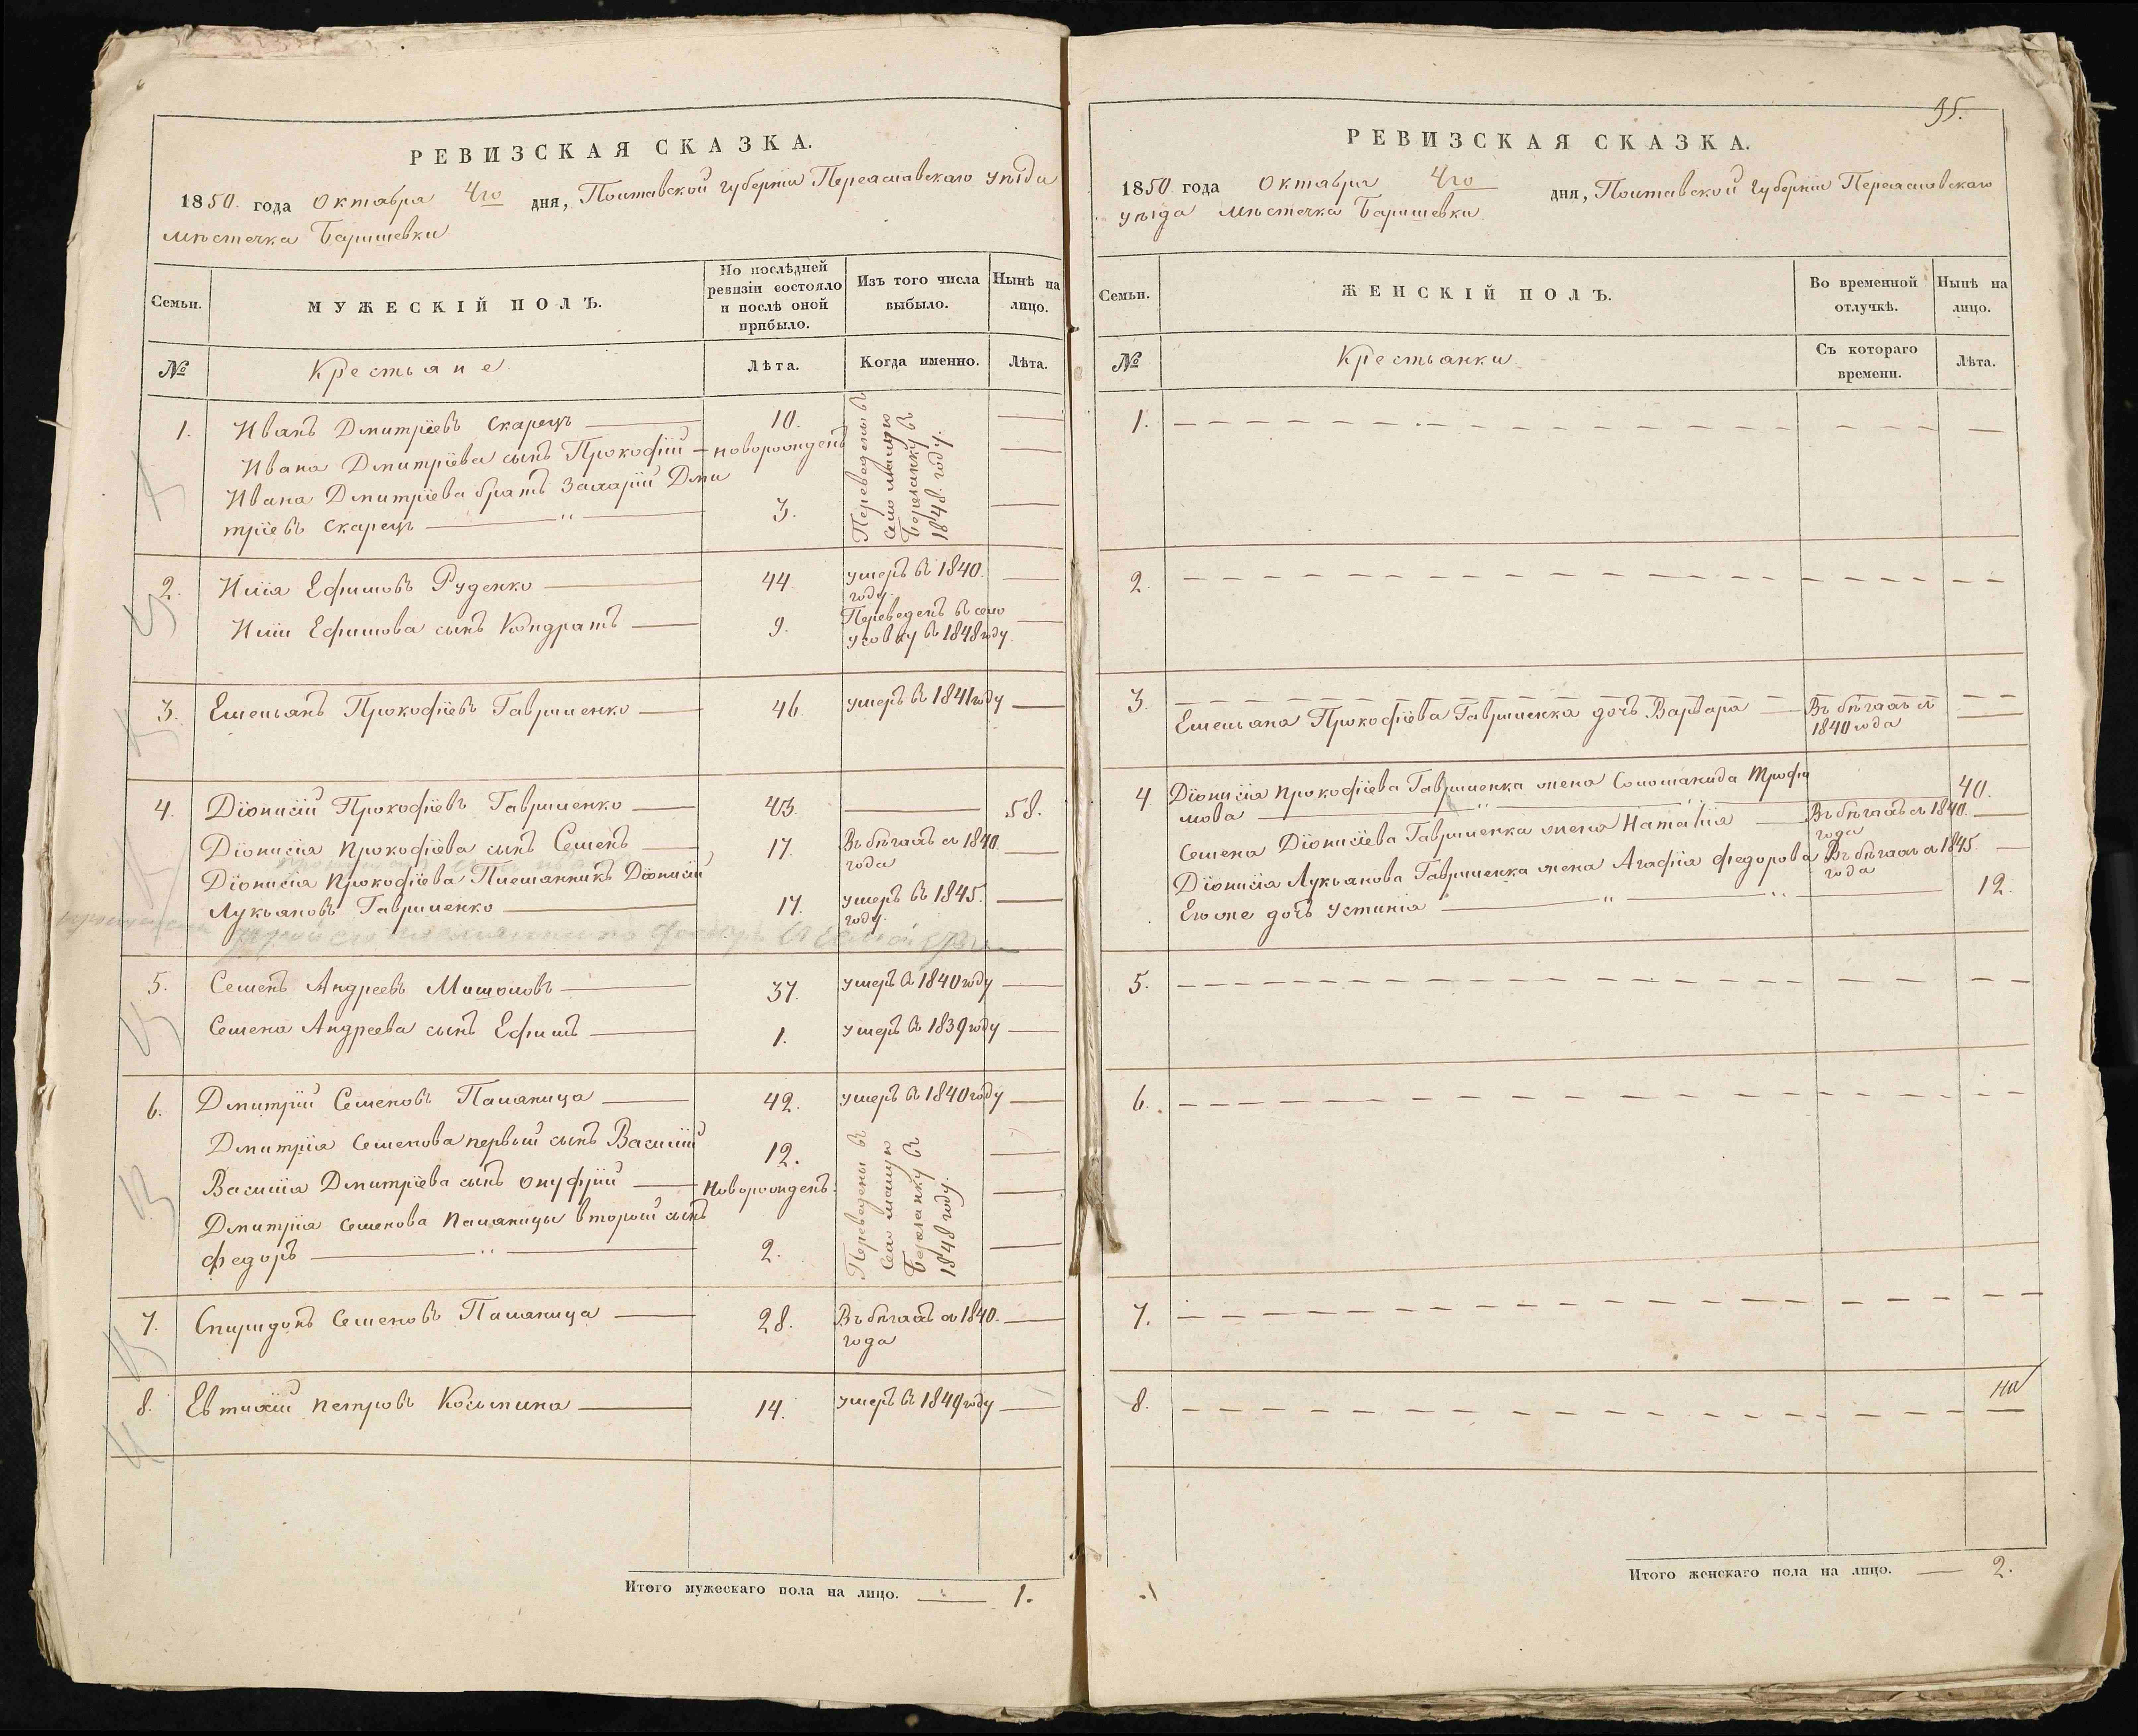 РЕВИЗСКАЯ СКАЗКА.
1850. года Октября 4го дня, Полтавской губерніи Переяславскаго уѣзда
мѣстечка Баришевки
Семьи.
МУЖЕСКІЙ ПОЛЪ.
По послѣдней ревизіи состояло и послѣ оной прибыло.
Изъ того числа выбыло.
Нынѣ на лицо.
№
Крестьяне
Лѣта.
Когда именно.
Лѣта.
1. Иванъ Дмитріевъ Скарецъ 10.
Ивана Дмитріева сынъ Прокофій новорожденъ
Ивана Дмитріева братъ Захарій Дми
тріевъ Скарецъ " 3.
Переведены въ
село малую
Березанку въ
1848. году.
2. Илія Ефимовъ Руденко 44. умеръ въ 1840.
году.
Иліи Ефимова сынъ Кондратъ 9. Переведенъ въ село
Усовку въ 1848 году.
3. Емельянъ Прокофіевъ Гавриленко 46. умеръ въ 1841 году
4. Діонисій Прокофіевъ Гавриленко 43. 58.
Діонисія Прокофіева сынъ Семенъ 17. Въ бѣгахъ съ 1840.
года
Діонисія Прокофіева Племянникъ Діонисій
Лукьяновъ Гавриленко 17. умеръ въ 1845.
году.
5. Семенъ Андреевъ 37. умеръ въ 1840 году
Семена Андреева сынъ Ефимъ 1. умеръ въ 1839 году
6. Дмитрій Семеновъ Паляница 42. умеръ въ 1840 году
Дмитрія Семенова первый сынъ Василій 12.
Василія Дмитріева сынъ Онуфрій Новорожденъ.
Дмитрія Семенова Паляницы второй сынъ
Федоръ " 2.
Переведены въ
село малую
Березанку въ
1848 году.
7. Спиридонъ Семеновъ Паляница 28. Въ бѣгахъ съ 1840.
года
8. Евтихій Петровъ 14. умеръ въ 1849 году
Итого мужескаго пола на лицо. 1.
95.
РЕВИЗСКАЯ СКАЗКА.
1850. года Октября 4го дня, Полтавской губерніи Переяславскаго
уѣзда мѣстечка Баришевки
Семьи.
ЖЕНСКІЙ ПОЛЪ.
Во временной отлучкѣ.
Нынѣ на лицо.
№
Крестьянки
Съ котораго времени.
Лѣта.
1.
2.
3.
Емельяна Прокофіева Гавриленка дочь Варвара Въ бѣгахъ съ
1840 года
4. Діонисія Прокофіева Гавриленка жена Соломанида Трофи
мова " " 40.
Семена Діонисіева Гавриленка жена Наталія Въ бѣгахъ съ 1840.
года
Діонисія Лукьянова Гавриленка жена Агафія Федорова Въ бѣгахъ съ 1845.
года
Его же дочь Устинія " " 12.
5.
6.
7.
8.
Итого женскаго пола на лицо. 2.